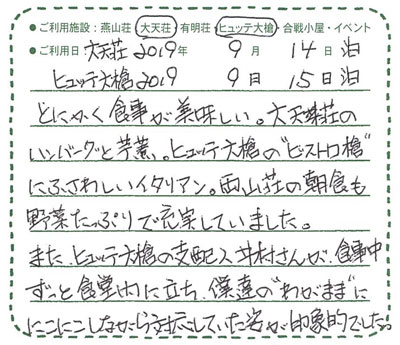 ●ご利用施設：燕山荘・大天荘・有明荘・ヒュッテ大槍・合戦小屋・イベント
●ご利用日 大天荘 2019年 9月 14日 泊
ヒュッテ大槍 2019 9日 15日 泊
とにかく食事が美味しい。大天荘の
ハンバーグと芋煮。ヒュッテ大槍の"ビストロ槍"
にふさわしいイタリアン。両山荘の朝食も
野菜たっぷりで充実していました。
また、ヒュッテ大槍の支配人 井村さんが、食事中
ずっと食堂内に立ち、僕達の"わがまま"に
にこにこしながら対応していた姿が印象的でした。